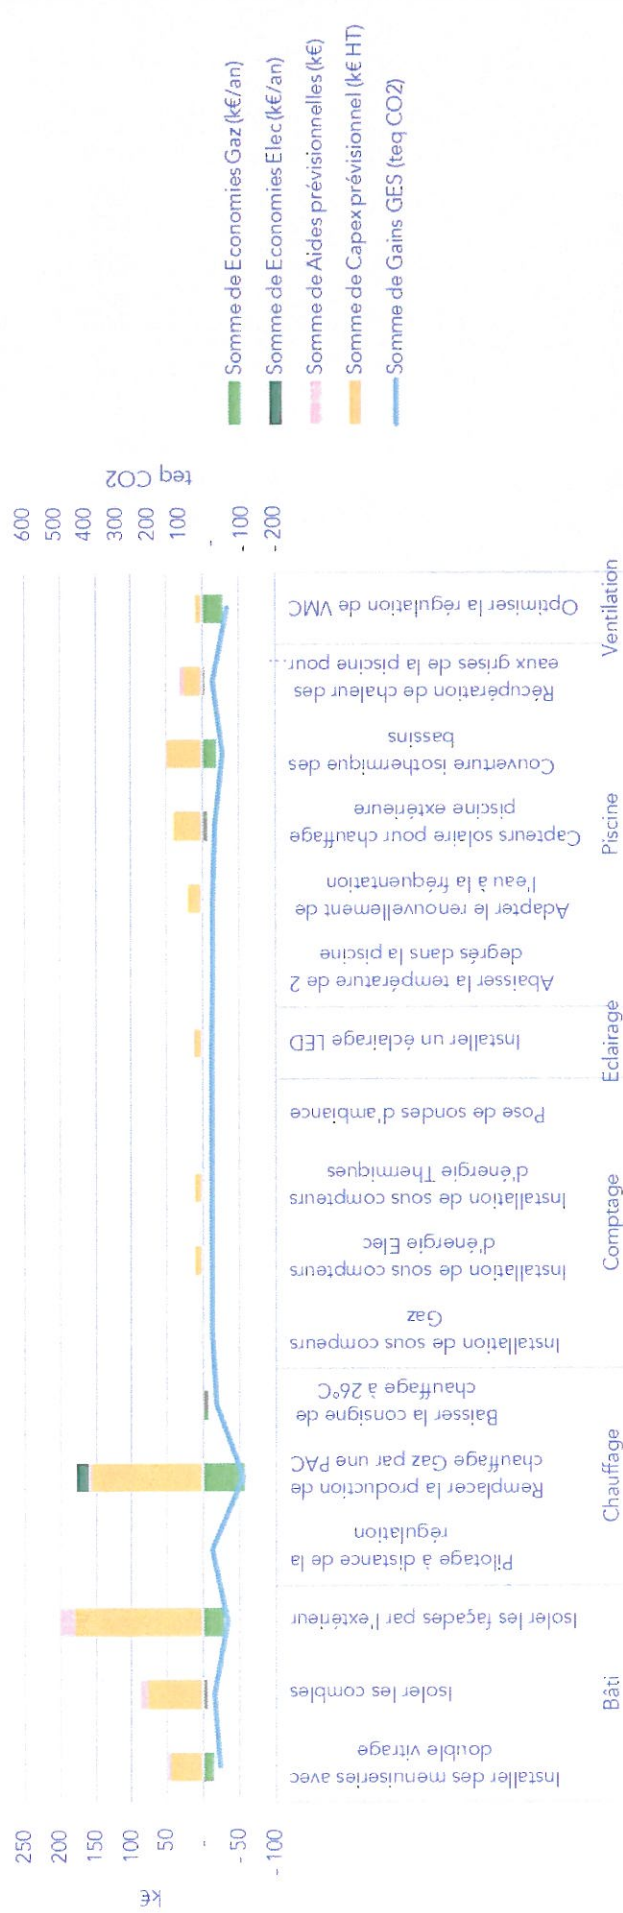 k€
250
200
150
100
50
-
- 50
- 100
teq CO2
600
500
400
300
200
100
-
- 100
- 200
Installer des menuiseries avec
double vitrage
Isoler les combles
Isoler les façades par l'extérieur
Pilotage à distance de la
régulation
Remplacer la production de
chauffage Gaz par une PAC
Baisser la consigne de
chauffage à 26°C
Installation de sous compeurs
Gaz
Installation de sous compteurs
d'énergie Elec
Installation de sous compteurs
d'énergie Thermiques
Pose de sondes d'ambiance
Installer un éclairage LED
Abaisser la température de 2
degrés dans la piscine
Adapter le renouvellement de
l'eau à la fréquentation
Capteurs solaire pour chauffage
piscine extérieure
Couverture isothermique des
bassins
Récupération de chaleur des
eaux grises de la piscine pour...
Optimiser la régulation de VMC
Bâti
Chauffage
Comptage
Eclairage
Piscine
Ventilation
Somme de Economies Gaz (k€/an)
Somme de Economies Elec (k€/an)
Somme de Aides prévisionnelles (k€)
Somme de Capex prévisionnel (k€ HT)
Somme de Gains GES (teq CO2)